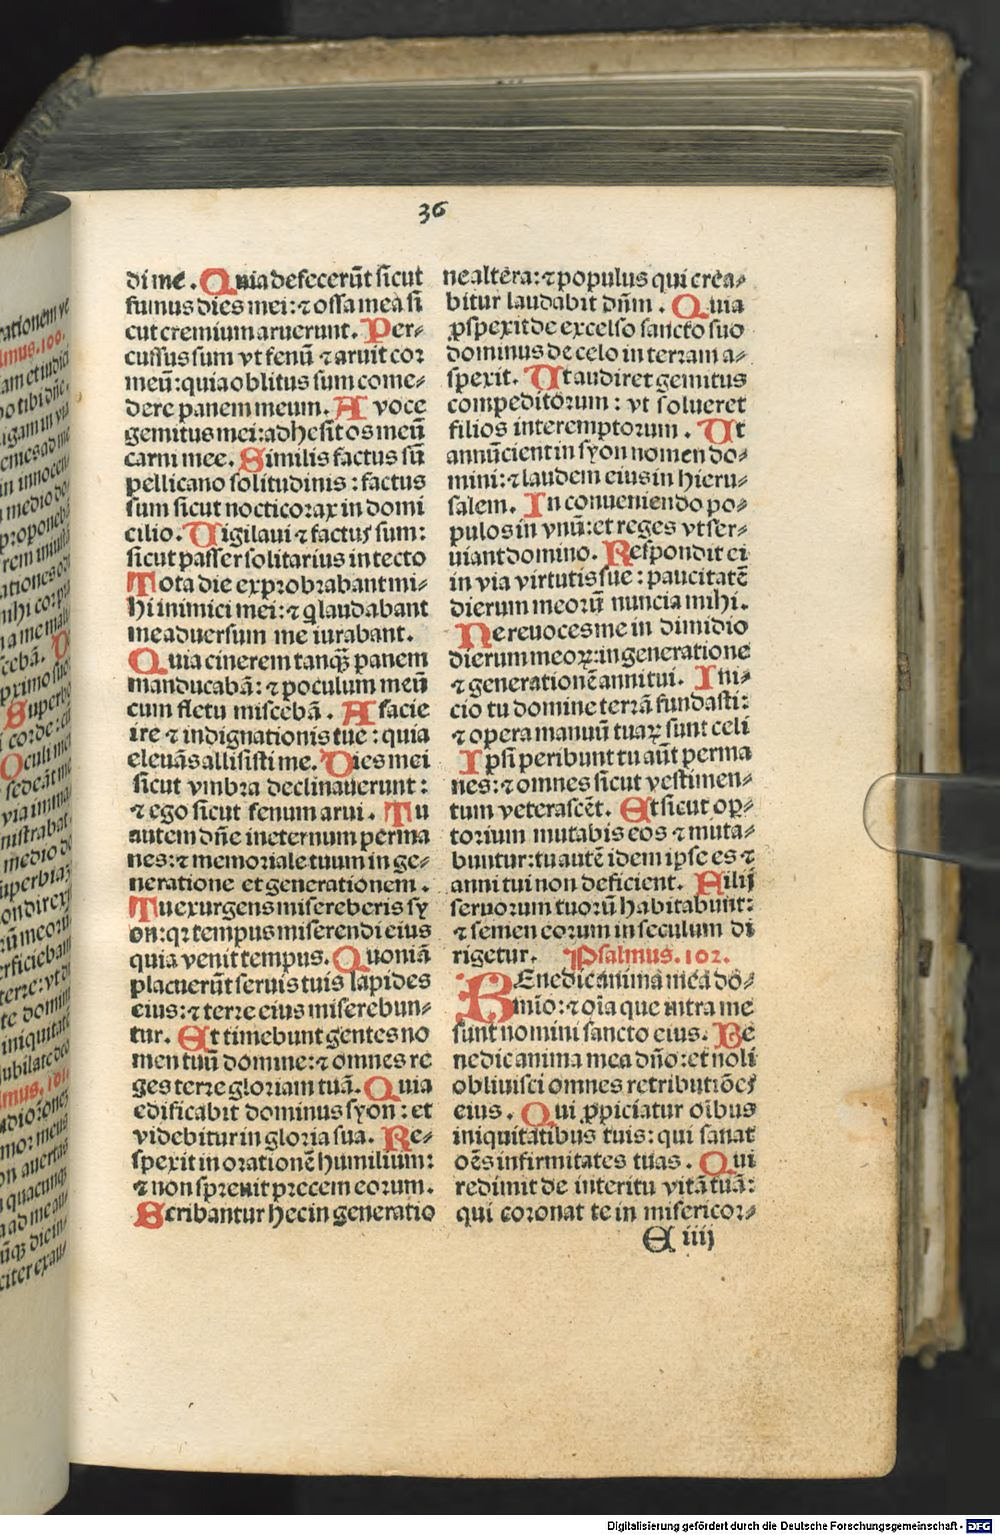 36
di me . Quia defecerūt sicut
fumus dies mei: ⁊ ossa mea si
cut cremium aruerunt. Per⸗
cussus sum vt fenū ⁊ aruit cor
meū: quia oblitus sum come⸗
dere panem meum. A voce
gemitus mei: adhesit os meū
carni mee. Similis factus sū
pellicano solitudinis : factus
sum sicut nocticorax in domi
cilio. Uigilaui ⁊ factus sum:
sicut passer solitarius in tecto
Tota die exprobrabant mi⸗
hi inimici mei: ⁊ q laudabant
me aduersum me iurabant.
Quia cinerem tanqȝ panem
manducabā: ⁊ poculum meū
cum fletu miscebā. A facie
ire ⁊ indignationis tue : quia
eleuās allisisti me. Dies mei
sicut vmbra declinauerunt :
⁊ ego sicut fenum arui. Tu
autem dn̄e in eternum perma
nes: ⁊ memoriale tuum in ge⸗
neratione et generationem.
Tu exurgens misereberis sy
on: qꝛ tempus miserendi eius
quia venit tempus. Quoniā
placuerūt seruis tuis lapides
eius: ⁊ terre eius miserebun⸗
tur. Et timebunt gentes no
men tuū domine: ⁊ omnes re
ges terre gloriam tuā. Quia
edificabit dominus syon : et
videbitur in gloria sua. Re⸗
spexit in orationē humilium:
⁊ non spreuit precem eorum.
Scribantur hec in generatio
ne altera: ⁊ populus qui crea⸗
bitur laudabit dn̄m . Quia
ꝓspexit de excelso sancto suo
dominus de celo in terram a⸗
spexit. Ut audiret gemitus
compeditorum : vt solueret
filios interemptorum . Ut
annūcient in syon nomen do⸗
mini: ⁊ laudem eius in hieru⸗
salem. In conueniendo po⸗
pulos in vnū: et reges vt ser⸗
uiant domino. Respondit ei
in via virtutis sue : paucitatē
dierum meorū nuncia mihi.
Ne reuoces me in dimidio
dierum meoꝝ: in generatione
⁊ generationē anni tui. Ini⸗
cio tu domine terrā fundasti:
⁊ opera manuū tuaꝝ sunt celi
Ipsi peribunt tu aūt perma
nes: ⁊ omnes sicut vestimen⸗
tum veterascēt. Et sicut op⸗
torium mutabis eos ⁊ muta⸗
buntur: tu autē idem ipse es ⁊
anni tui non deficient. Filij
seruorum tuorū habitabunt:
⁊ semen eorum in seculum di
rigetur. Psalmus. 102.
BEnedic anima mea do⸗
mīo: ⁊ oīa que intra me
sunt nomini sancto eius. Be
nedic anima mea dn̄o: et noli
obliuisci omnes retributiōes
eius . Qui ꝓpiciatur oībus
iniquitatibus tuis: qui sanat
oēs infirmitates tuas . Qui
redimit de interitu vitā tuā:
qui coronat te in misericor⸗
E iiij
Digitalisierung gefördert durch die Deutsche Forschungsgemeinschaft - DFG